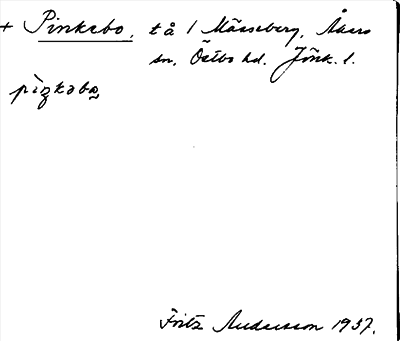 + Pinkabo, tå / Mässeberg, Åkers
sn, Östbo hd. Jönk. l.
pìŋkabo
Fritz Andersson 1937.